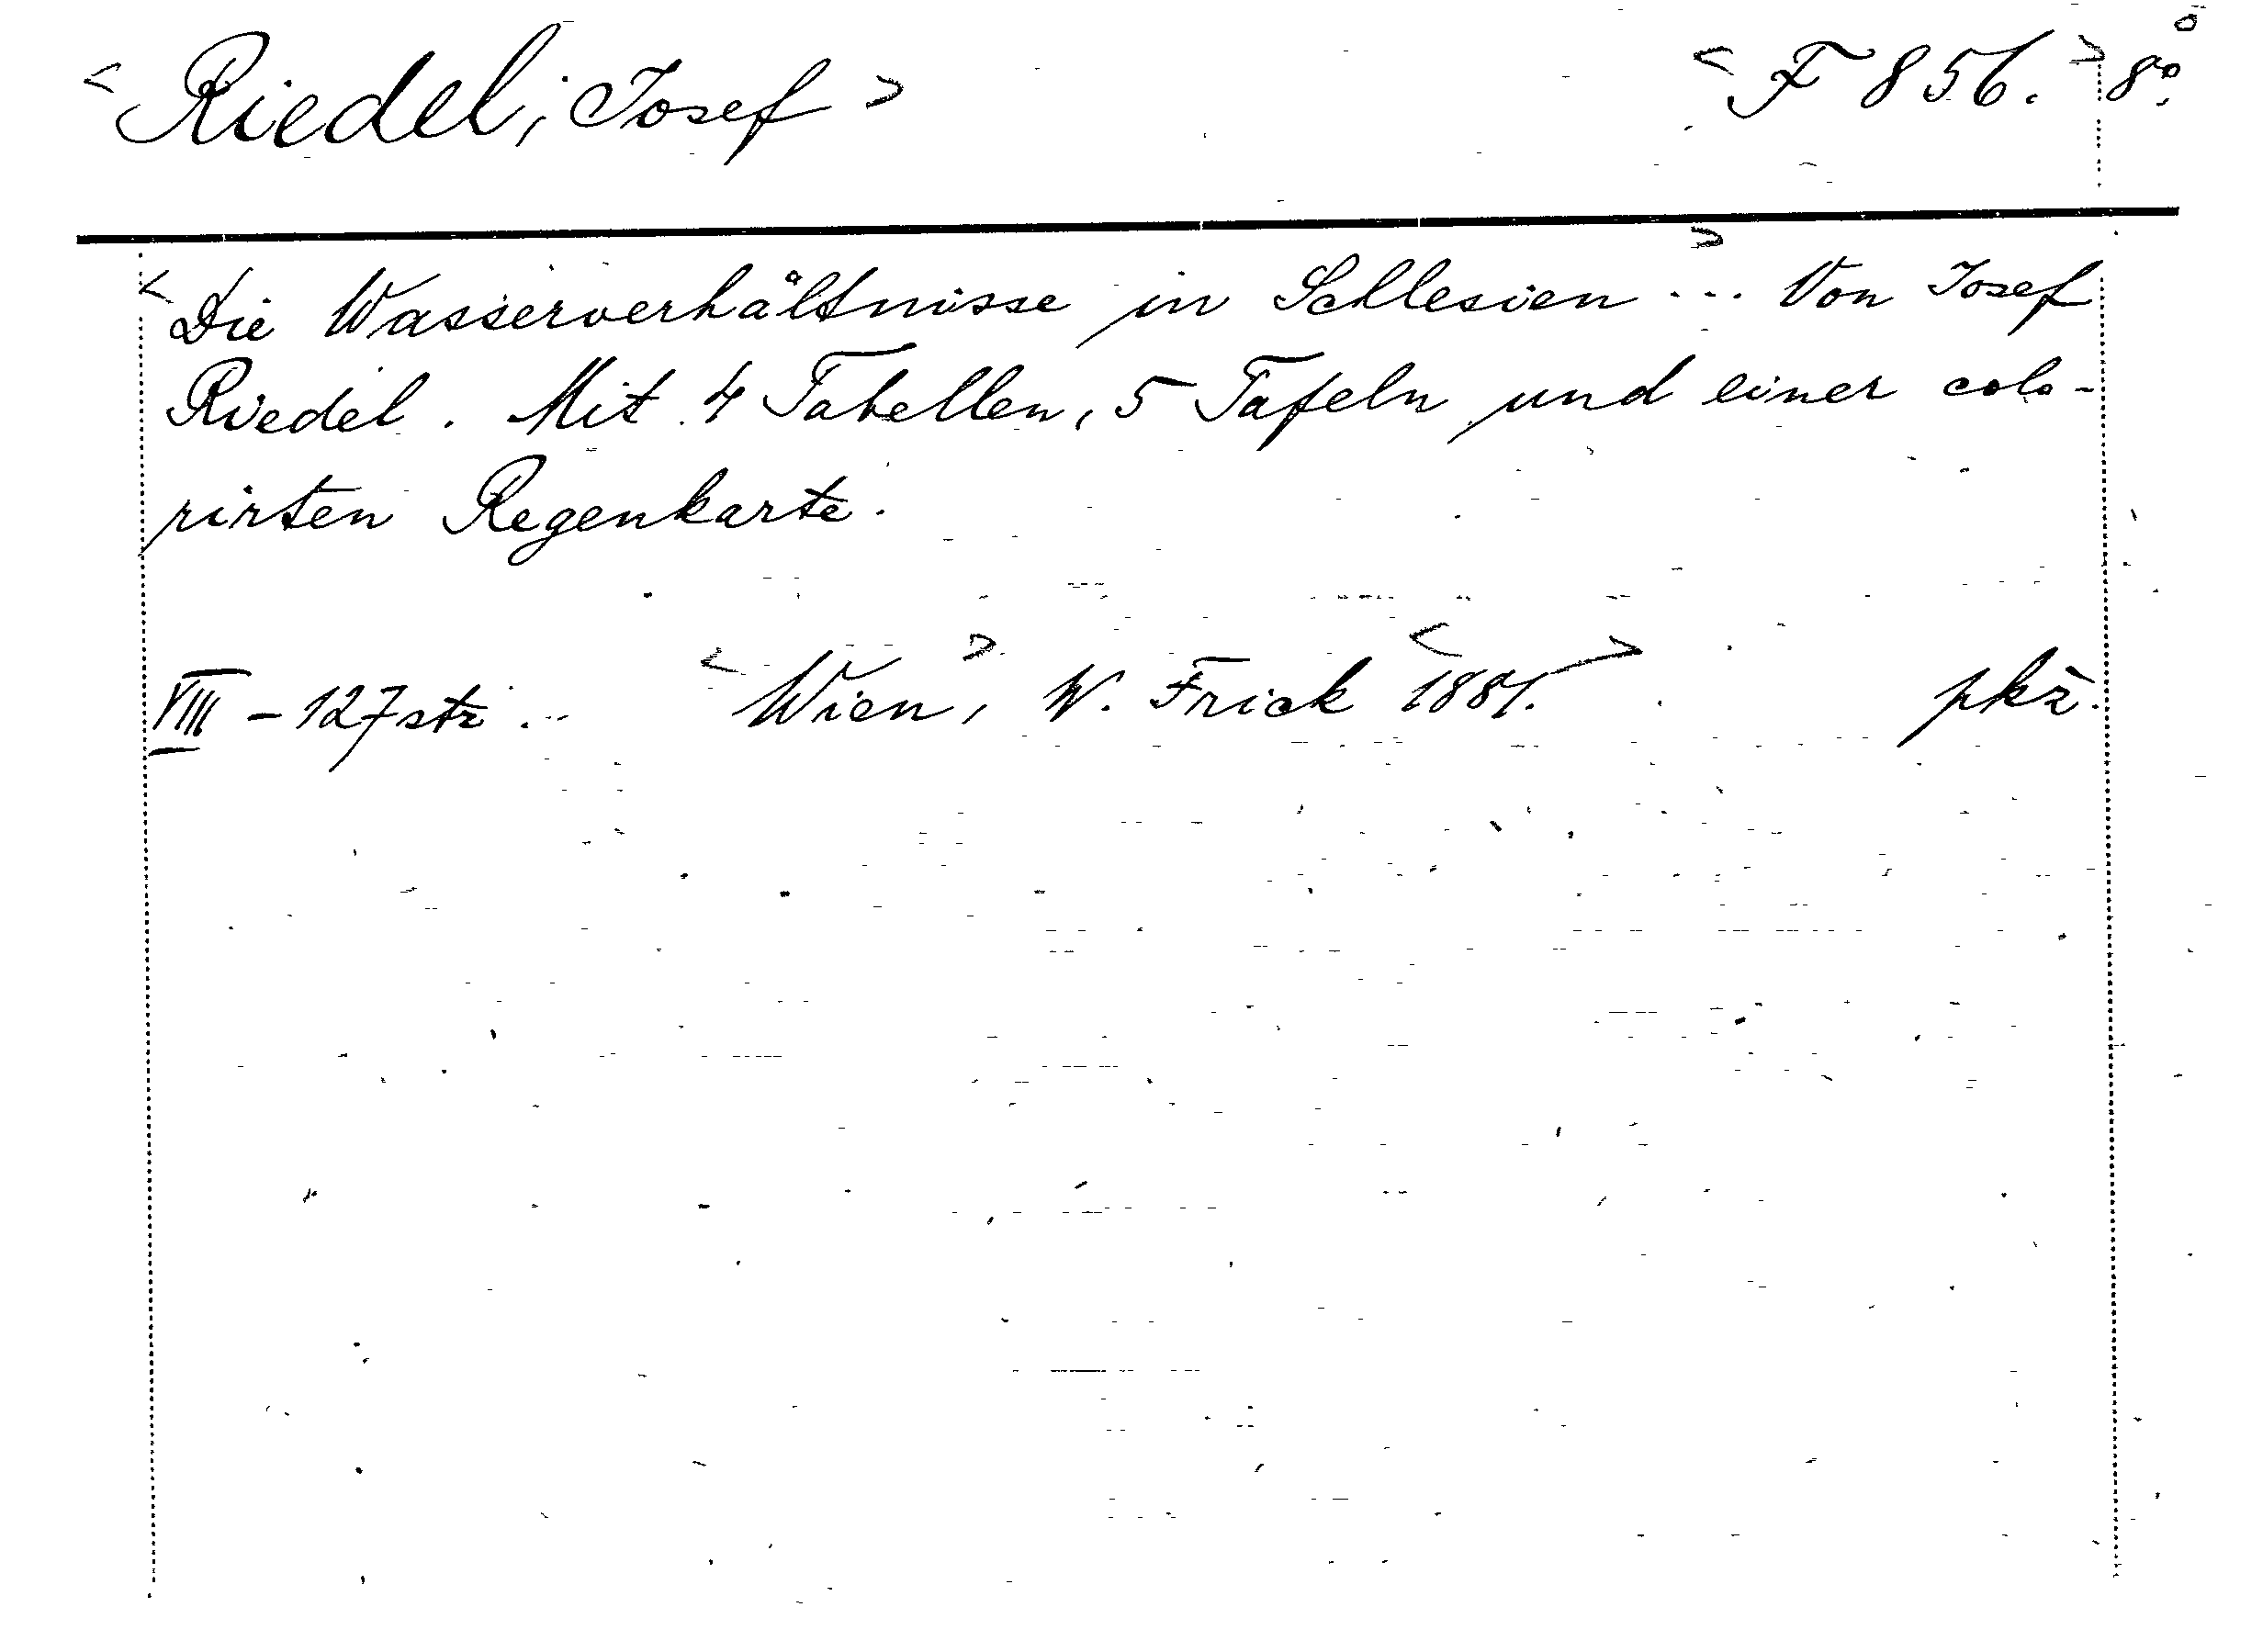 <Riedel, Josef> <F 856.> 8°.
<Die Wasserverhältnisse in Schlesien ...> Von Josef
Riedel. Mit 4 Tabellen, 5 Tafeln und einer colo-
rirten Regenkarte.
VIII - 127 str. <Wien>, W. Frick <1881.> pkž.